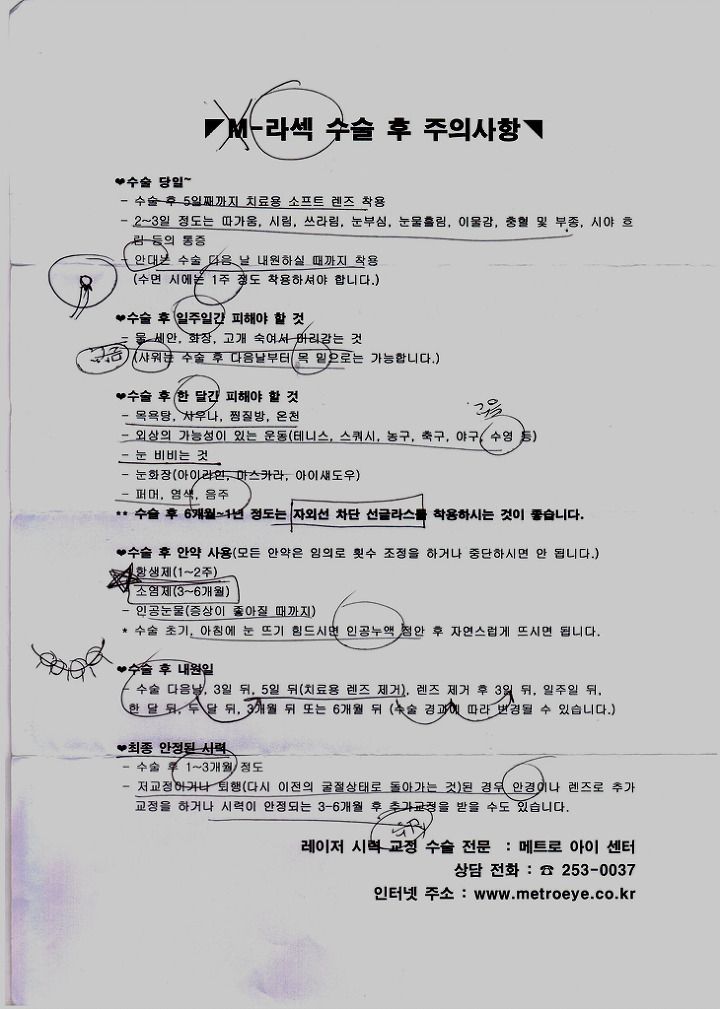 ◤M-라섹 수술 후 주의사항◥
❤수술 당일~
- 수술 후 5일째까지 치료용 소프트 렌즈 착용
- 2~3일 정도는 따가움, 시림, 쓰라림, 눈부심, 눈물흘림, 이물감, 충혈 및 부종, 시야 흐
림 등의 통증
- 안대는 수술 다음 날 내원하실 때까지 착용
(수면 시에는 1주 정도 착용하셔야 합니다.)
❤수술 후 일주일간 피해야 할 것
- 물 세안, 화장, 고개 숙여서 머리감는 것
(샤워는 수술 후 다음날부터 목 밑으로는 가능합니다.)
❤수술 후 한 달간 피해야 할 것
- 목욕탕, 사우나, 찜질방, 온천
- 외상의 가능성이 있는 운동(테니스, 스쿼시, 농구, 축구, 야구, 수영 등)
- 눈 비비는 것
- 눈화장(아이라인, 마스카라, 아이섀도우)
- 퍼머, 염색, 음주
** 수술 후 6개월~1년 정도는 자외선 차단 선글라스를 착용하시는 것이 좋습니다.
❤수술 후 안약 사용(모든 안약은 임의로 횟수 조정을 하거나 중단하시면 안 됩니다.)
- 항생제(1~2주)
- 소염제(3~6개월)
- 인공눈물(증상이 좋아질 때까지)
* 수술 초기, 아침에 눈 뜨기 힘드시면 인공누액 점안 후 자연스럽게 뜨시면 됩니다.
❤수술 후 내원일
- 수술 다음날, 3일 뒤, 5일 뒤(치료용 렌즈 제거), 렌즈 제거 후 3일 뒤, 일주일 뒤,
한 달 뒤, 두 달 뒤, 3개월 뒤 또는 6개월 뒤 (수술 경과에 따라 변경될 수 있습니다.)
❤최종 안정된 시력
- 수술 후 1~3개월 정도
- 저교정이거나 퇴행(다시 이전의 굴절상태로 돌아가는 것)된 경우 안경이나 렌즈로 추가
교정을 하거나 시력이 안정되는 3-6개월 후 추가교정을 받을 수도 있습니다.
레이저 시력 교정 수술 전문 : 메트로 아이 센터
상담 전화 : ☎ 253-0037
인터넷 주소 : www.metroeye.co.kr